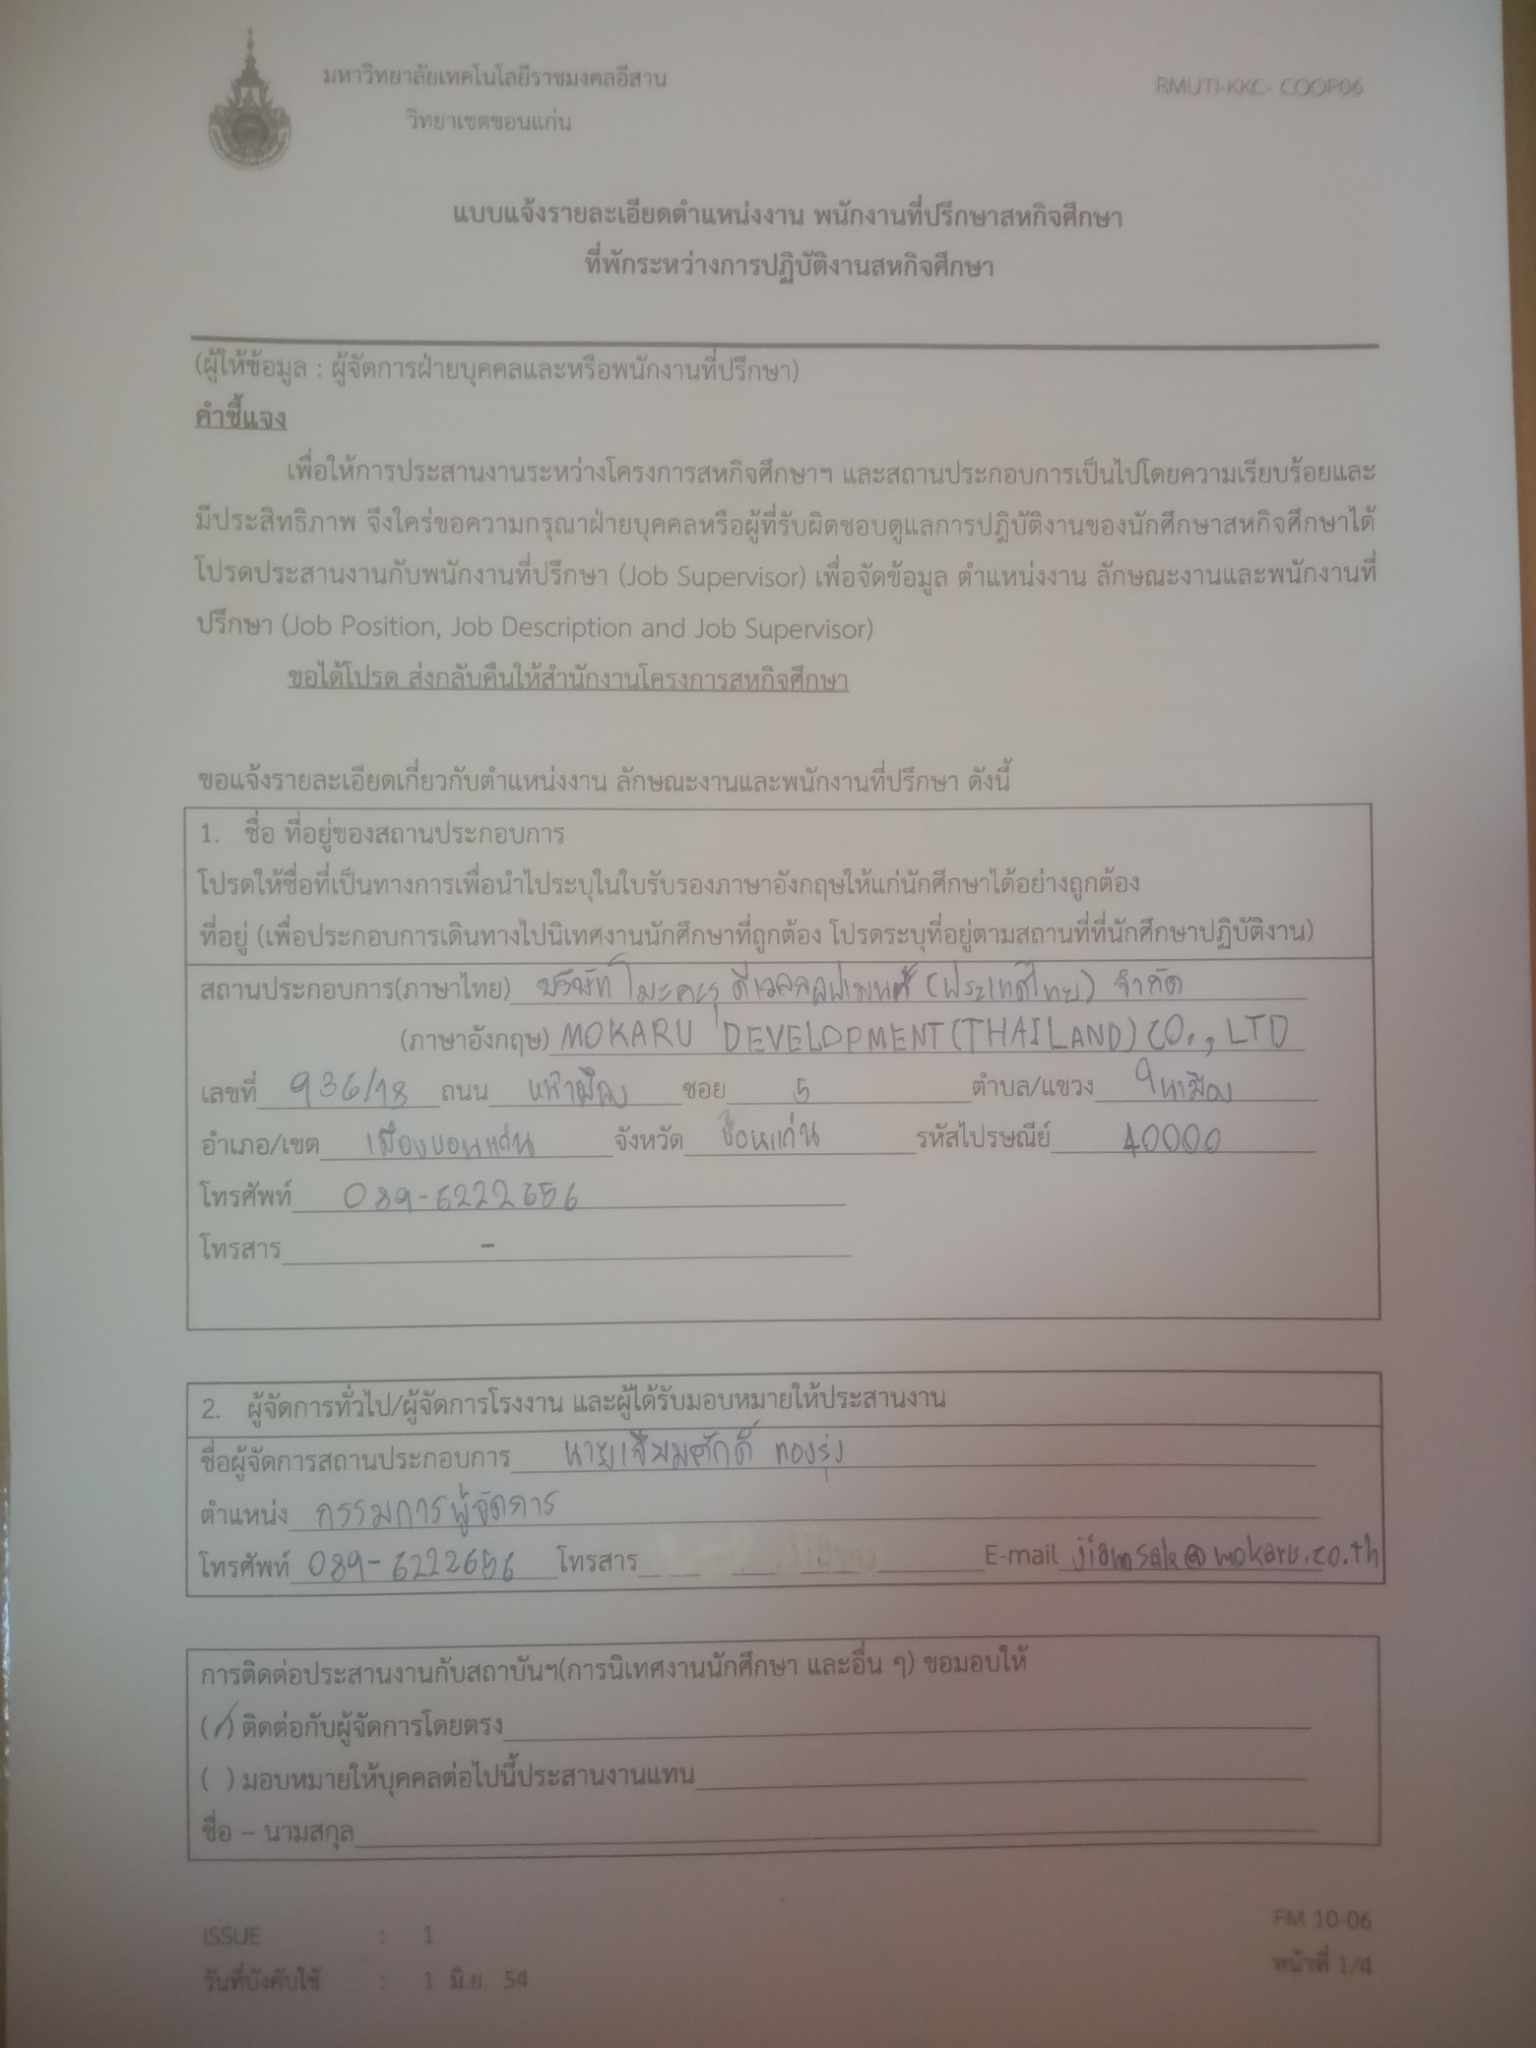 มหาวิทยาลัยเทคโนโลยีราชมงคลอีสาน
วิทยาเขตขอนแก่น
RMUTI-KKC- COOP06
แบบแจ้งรายละเอียดตำแหน่งงาน พนักงานที่ปรึกษาสหกิจศึกษา
ที่พักระหว่างการปฏิบัติงานสหกิจศึกษา
(ผู้ให้ข้อมูล : ผู้จัดการฝ่ายบุคคลและหรือพนักงานที่ปรึกษา)
คำชี้แจง
เพื่อให้การประสานงานระหว่างโครงการสหกิจศึกษาฯ และสถานประกอบการเป็นไปโดยความเรียบร้อยและ
มีประสิทธิภาพ จึงใคร่ขอความกรุณาฝ่ายบุคคลหรือผู้ที่รับผิดชอบดูแลการปฏิบัติงานของนักศึกษาสหกิจศึกษาได้
โปรดประสานงานกับพนักงานที่ปรึกษา (Job Supervisor) เพื่อจัดข้อมูล ตำแหน่งงาน ลักษณะงานและพนักงานที่
ปรึกษา (Job Position, Job Description and Job Supervisor)
ขอได้โปรด ส่งกลับคืนให้สำนักงานโครงการสหกิจศึกษา
ขอแจ้งรายละเอียดเกี่ยวกับตำแหน่งงาน ลักษณะงานและพนักงานที่ปรึกษา ดังนี้
1. ชื่อ ที่อยู่ของสถานประกอบการ
โปรดให้ชื่อที่เป็นทางการเพื่อนำไประบุในใบรับรองภาษาอังกฤษให้แก่นักศึกษาได้อย่างถูกต้อง
ที่อยู่ (เพื่อประกอบการเดินทางไปนิเทศงานนักศึกษาที่ถูกต้อง โปรดระบุที่อยู่ตามสถานที่ที่นักศึกษาปฏิบัติงาน)
สถานประกอบการ(ภาษาไทย) บริษัท โมะคะรุ ดีเวลลอปเมนท์ (ประเทศไทย) จำกัด
(ภาษาอังกฤษ) MOKARU DEVELOPMENT (THAILAND) CO., LTD
เลขที่ 936/18 ถนน หน้าเมือง ซอย 5 ตำบล/แขวง ในเมือง
อำเภอ/เขต เมืองขอนแก่น จังหวัด ขอนแก่น รหัสไปรษณีย์ 40000
โทรศัพท์ 089-6222656
โทรสาร -
2. ผู้จัดการทั่วไป/ผู้จัดการโรงงาน และผู้ได้รับมอบหมายให้ประสานงาน
ชื่อผู้จัดการสถานประกอบการ นายเจียมศักดิ์ ทองรุ่ง
ตำแหน่ง กรรมการผู้จัดการ
โทรศัพท์ 089-6222656 โทรสาร E-mail jiamsak@mokaru.co.th
การติดต่อประสานงานกับสถาบันฯ(การนิเทศงานนักศึกษา และอื่น ๆ) ขอมอบให้
(/) ติดต่อกับผู้จัดการโดยตรง
( ) มอบหมายให้บุคคลต่อไปนี้ประสานงานแทน
ชื่อ – นามสกุล
ISSUE : 1
วันที่บังคับใช้ : 1 มิ.ย. 54
FM 10-06
หน้าที่ 1/4